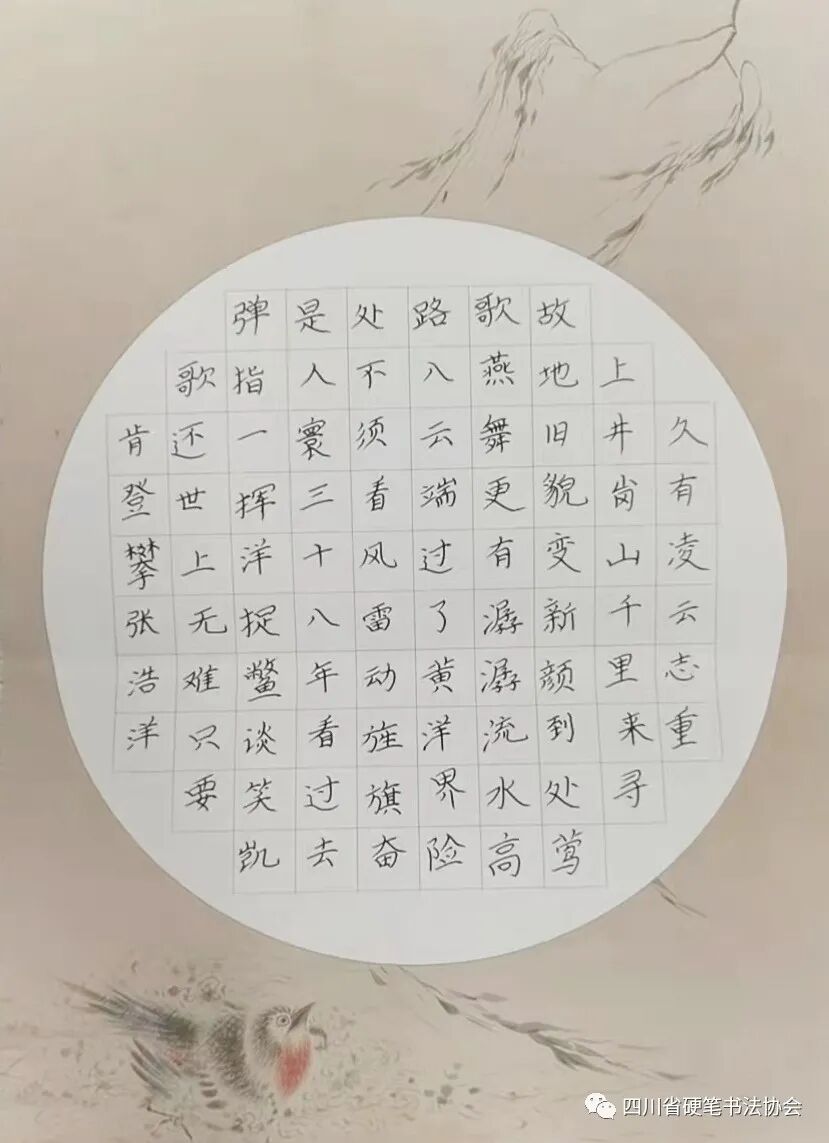 久有凌云志重
上井岗山千里来寻
故地旧貌变新颜到处莺
歌燕舞更有潺潺流水高
路八云端过了黄洋界险
处不须看风雷动旌旗奋
是人寰三十八年看过去
弹指一挥洋捉鳖谈笑凯
歌还世上无难只要
肯登攀张浩洋
四川省硬笔书法协会